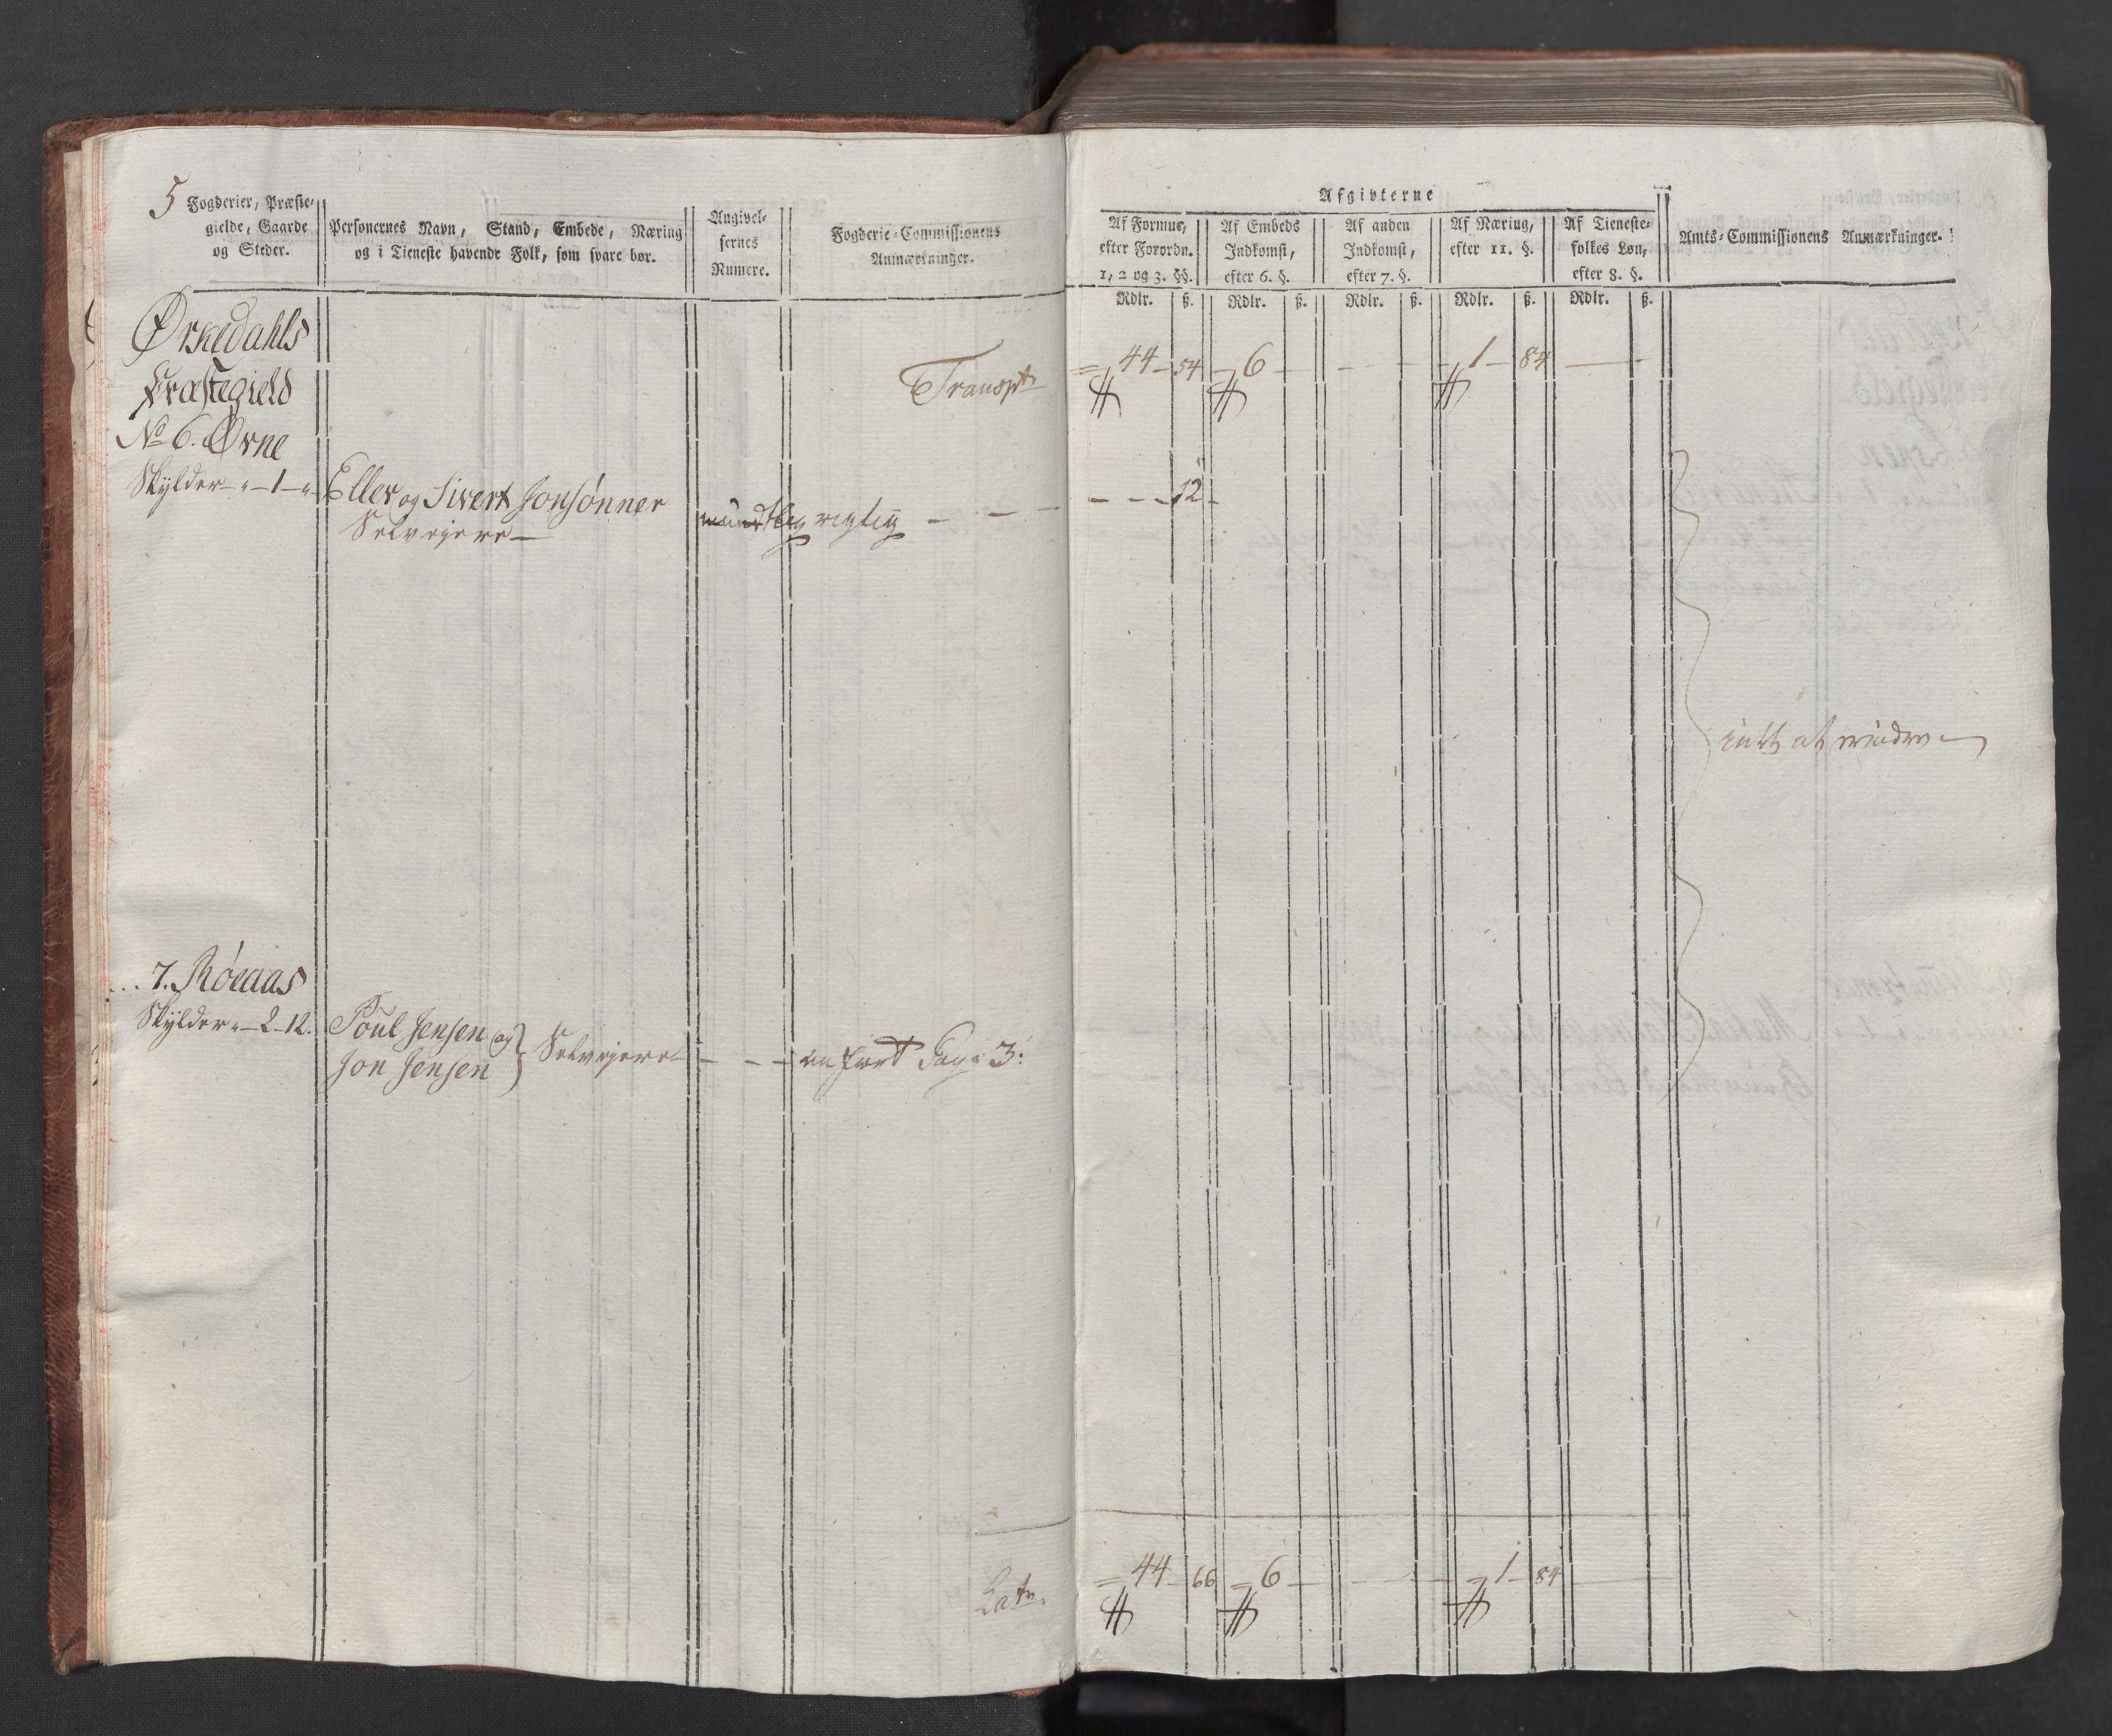 5
Fogderier, Præste-
gielde, Gaarde
og Steder.
Personernes Navn, Stand, Embede, Næring
og i Tieneste havende Folk, som svare bør.
Angivel-
sernes
Numere.
Fogderie-Commissionens
Anmærkninger.
Afgivterne
Af Formue,
efter Forordn.
1, 2 og 3. §§.
Af Embeds
Indkomst,
efter 6. §.
Af anden
Indkomst,
efter 7. §.
Af Næring,
efter 11. §.
Af Tieneste-
folkes Løn,
efter 8. §.
Amts-Commissionens Anmærkninger.
Rdlr. ß. Rdlr. ß. Rdlr. ß. Rdlr. ß. Rdlr. ß.
Ørkedahls
Præstegield
Transpt 44 54 6 1 84
No 6. Ørne
Skylder - " - 1 - "
Eller og Sivert Jonsønner
Selveyere
mundtlig rigtig 12
intet at erindre
7. Røeaas
Skylder " - 2 - 12.
Poul Jensen og
Jon Jensen
Selveyere
anført Pag: 3:
Latr. 44 66 6 1 84